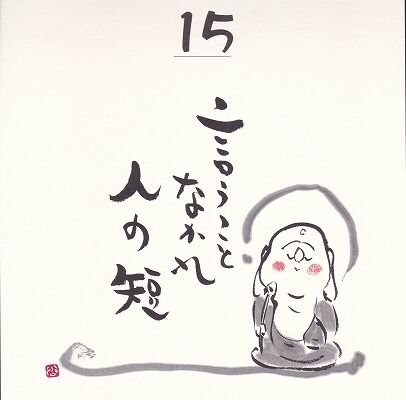 15
言うこと
なかれ
人の短